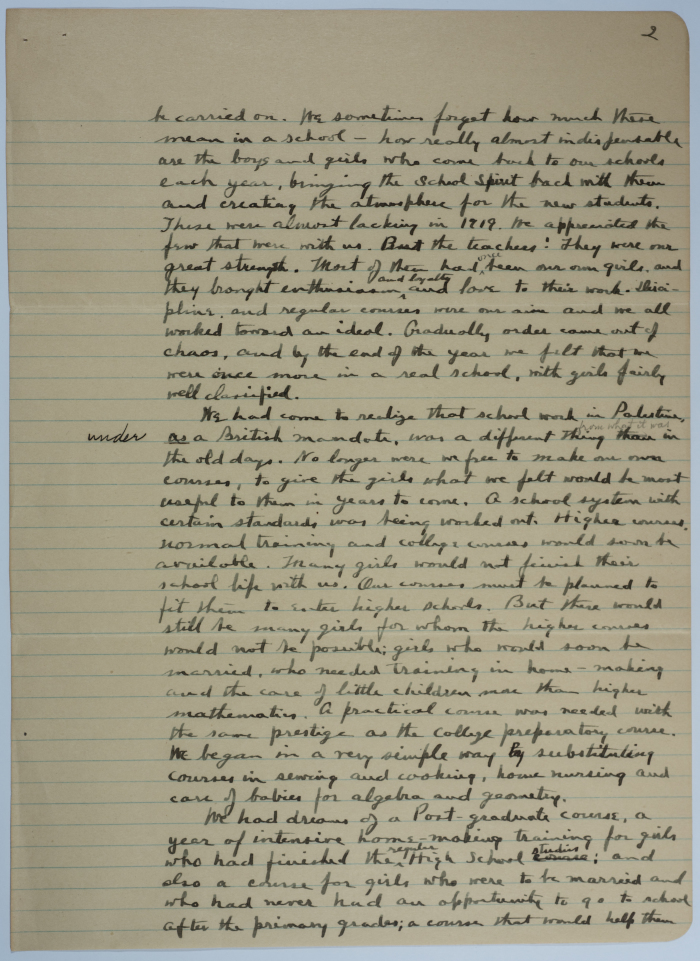 2
be carried on. We sometimes forget how much these
mean in a school – how really almost indispensable
are the boys and girls who come back to our schools
each year, bringing the School Spirit back with them
and creating the atmosphere for the new students.
These were almost lacking in 1919. We appreciated the
few that were with us. But the teachers! They were our
great strength. Most of them had once been our own girls, and
they brought enthusiasm and loyalty and love to their work. Disci-
pline, and regular courses were our aim and we all
worked toward an ideal. Gradually order came out of
chaos, and by the end of the year we felt that we
were once more in a real school, with girls fairly
well classified.
We had come to realize that school work in Palestine,
under as a British mandate, was a different thing from what it was than in
the old days. No longer were we free to make our own
courses, to give the girls what we felt would be most
useful to them in years to come. A school system with
certain standards was being worked out. Higher courses,
normal training and college courses would soon be
available. Many girls would not finish their
school life with us. Our courses must be planned to
fit them to enter higher schools. But there would
still be many girls for whom the higher courses
would not be possible; girls who would soon be
married, who needed training in home-making
and the care of little children more than higher
mathematics. A practical course was needed with
the same prestige as the college preparatory course.
We began in a very simple way by substituting
courses in sewing and cooking, home nursing and
care of babies for algebra and geometry.
We had dreams of a Post-graduate course, a
year of intensive home-making training for girls
who had finished the regular High School course studies; and
also a course for girls who were to be married and
who had never had an opportunity to go to school
after the primary grades; a course that would help them